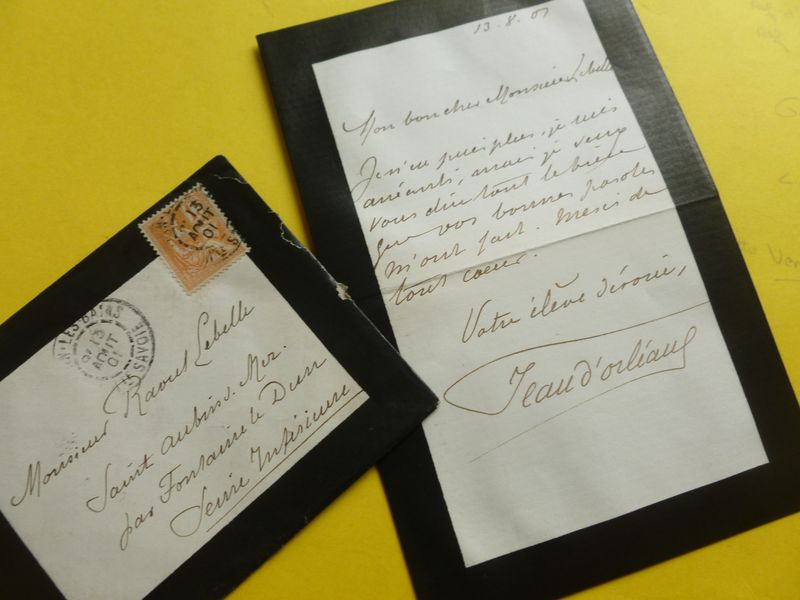 13.8.01
Mon bon cher Monsieur Lebelle
Je n'en puis plus, je suis
anéanti, mais je veux
vous dire tout le bien
que vos bonnes paroles
m'ont fait. Merci de
tout coeur.
Votre élève dévoué,
Jean d'orléans
13
AOUT
01
LES-BAINS
13
AOUT
01
SAVOIE
Monsieur Raoul Lebelle
Saint Aubin s. Mer
par Fontaine le Dun
Seine Inférieure